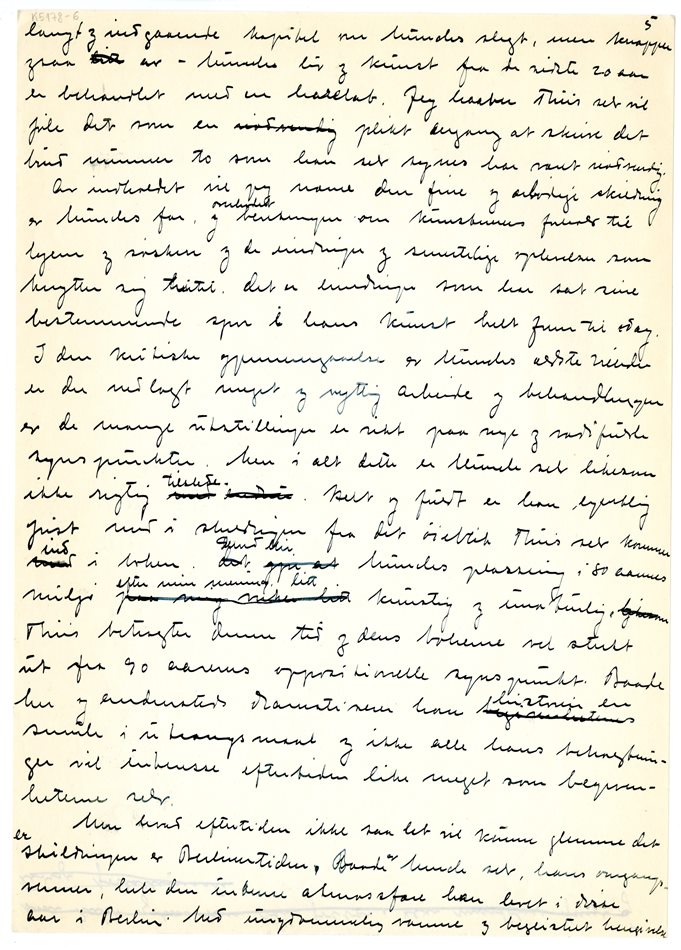 K5178-6
5
langt og indgaaende kapitel om Munchs slegt, men knapper
ogsaa av - Munchs liv og kunst fra de sidste 20 aar
er behandlet med en harelab. Jeg haaber Thiis selv vil
føle det som en nødvendig plikt engang at skrive det
bind nummer to som han selv synes har vært nødvendig.
Av indholdet vil jeg nævne den fine og skildring
er Munchs far, og om kunstnerens forhold til
hjem og søsken og de mindringer og smertelige oplevelser som
knytter sig hertil. Det er mindringer som har sat sine
bestemmende spor i hans kunst helt frem til idag.
I den kritiske gjennemgaaelse er Munchs ældste billeder
er der nedlagt meget og nyttig arbeide og behandlingen
er de mange utstillinger er rikt paa nye og
synspunkter. Men i alt dette er Munch selv likesom
ikke rigtig tilstede. Helt og fuldt er han egentlig
først med i skildringen fra det øieblik Thiis selv kommer
ind i boken. Munchs plassering i 80 aarenes
miljø efter min mening litt kunstig og unaturlig,
Thiis betragter denne tid og dens boheme vel sterkt
ut fra 90 aarenes oppositionelle synspunkt. Baade
her og andensteds dramatiserer han historien en
smule i utrangsmaal og ikke alle hans betragtnin-
ger vil interesse eftertiden like meget som begiven-
heterne selv.
Men hvad eftertiden ikke saa let vil kunne glemme det
er skildringen er Berlinertiden, Baade Munch selv, hans omgangs-
venner, hele den intense atmosfære han levet i disse
aar i Berlin. Med ungdommelig varme og begeistret